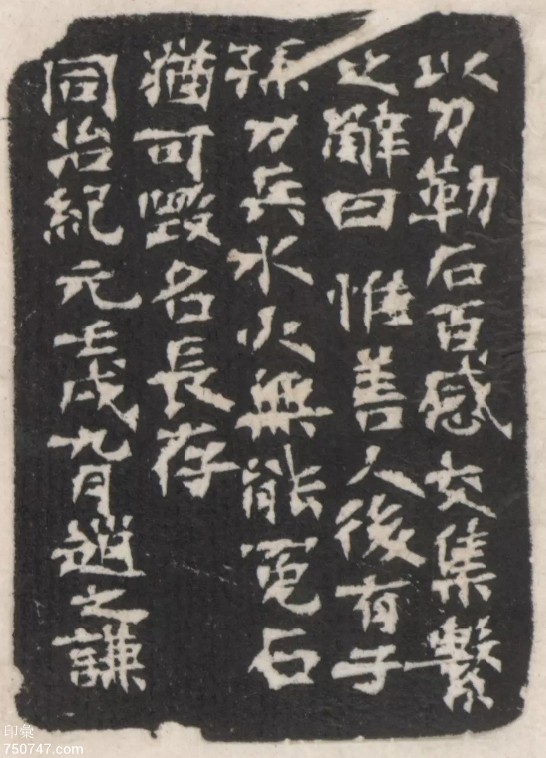 以刀勒石百感交集繫
之辭曰惟善人後有子
孫刀兵水火無能冤石
猶可毀名長存
同治紀元壬戌九月趙之謙
印彙
750747.com